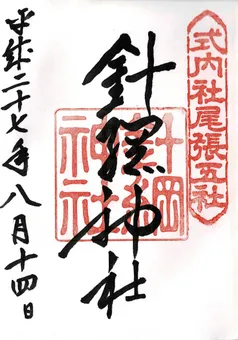 式内社尾張五社
針綱神社
針綱
神社
平成二十七年八月十四日